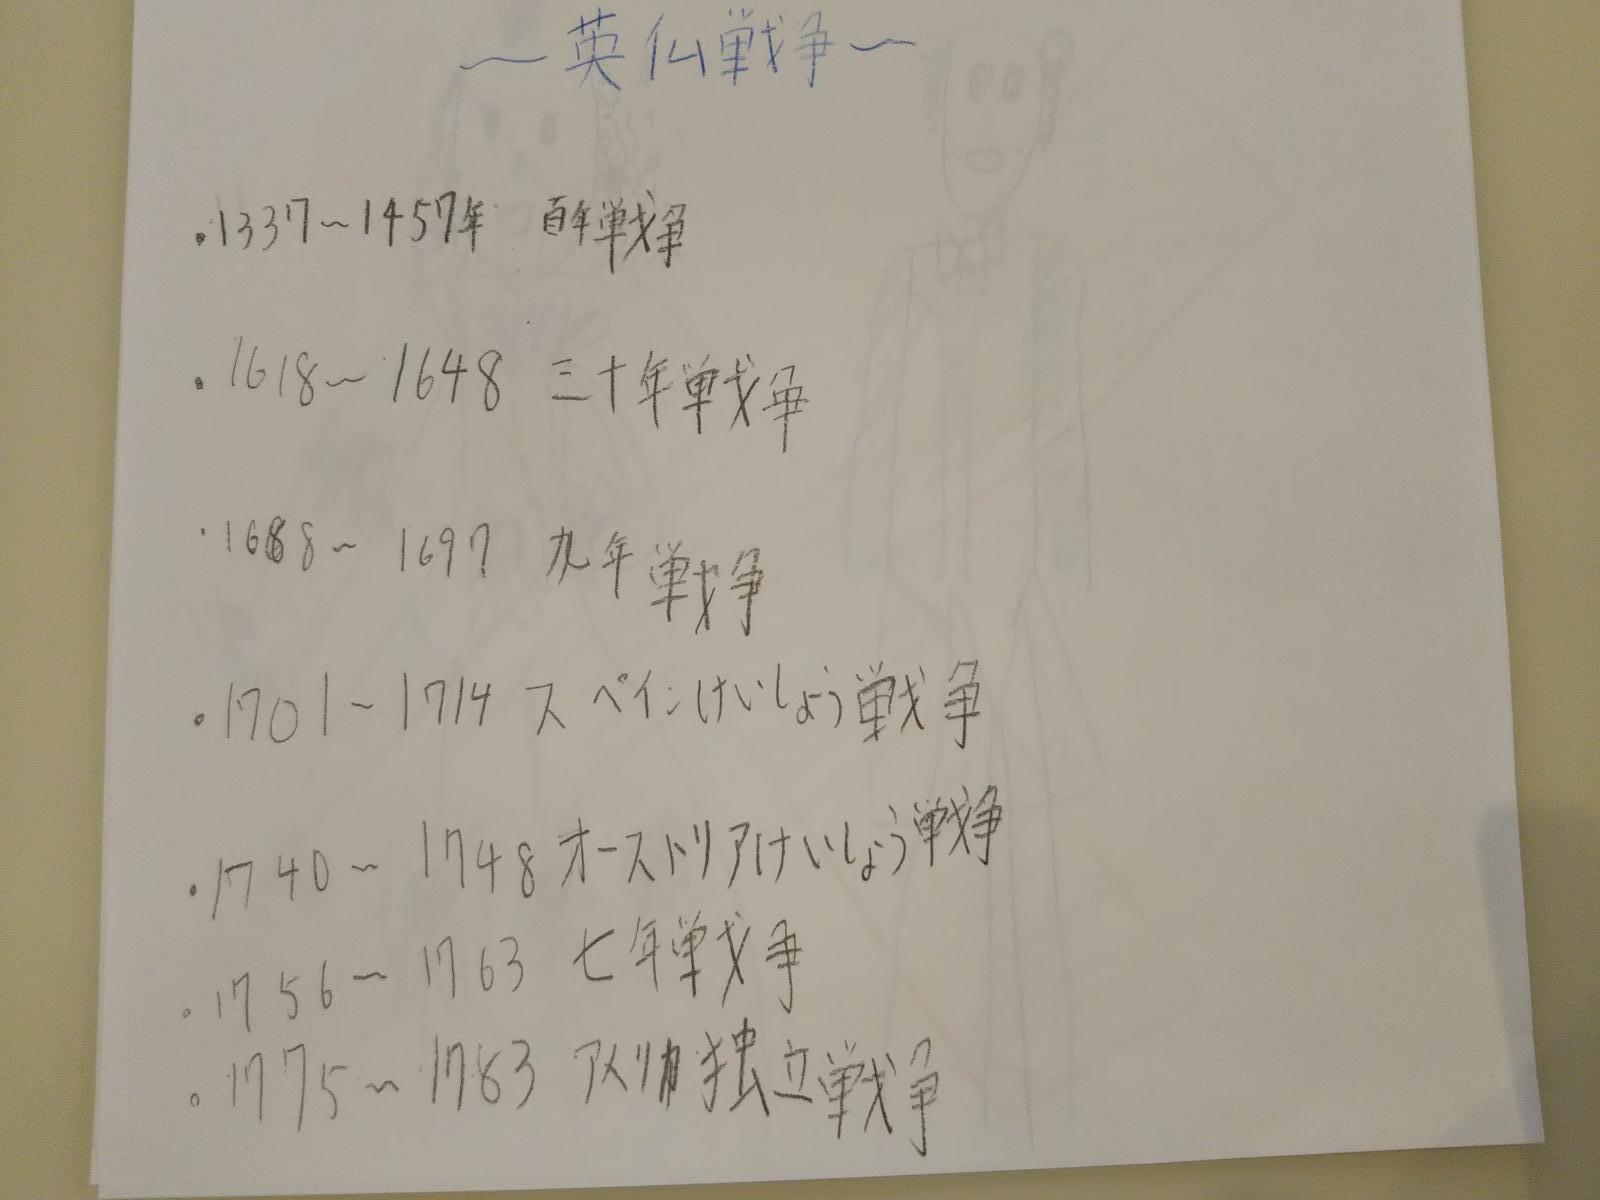 ～英仏戦争～
・1337～1457年 百年戦争
・1618～1648 三十年戦争
・1688～1697 九年戦争
・1701～1714 スペインけいしょう戦争
・1740～1748 オーストリアけいしょう戦争
・1756～1763 七年戦争
・1775～1783 アメリカ独立戦争